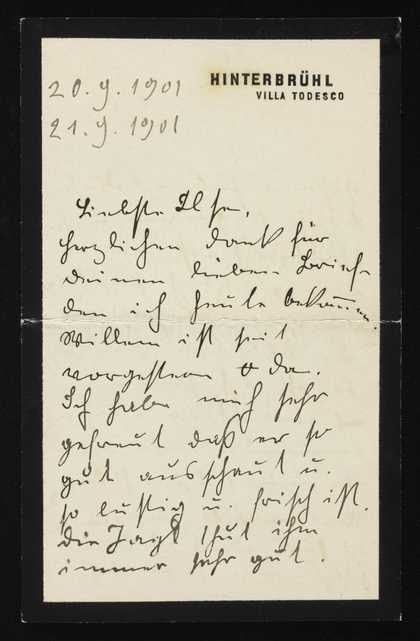 HINTERBRÜHL
VILLA TODESCO
20.9.1901
21.9.1901
Liebste Ilse,
herzlichen Dank für
deinen lieben Brief
den ich heute bekommen.
Willem ist seit
vorgestern da.
Ich habe mich sehr
gefreut daß er so
gut ausschaut u.
so lustig u. frisch ist.
die Jagd thut ihm
immer sehr gut.